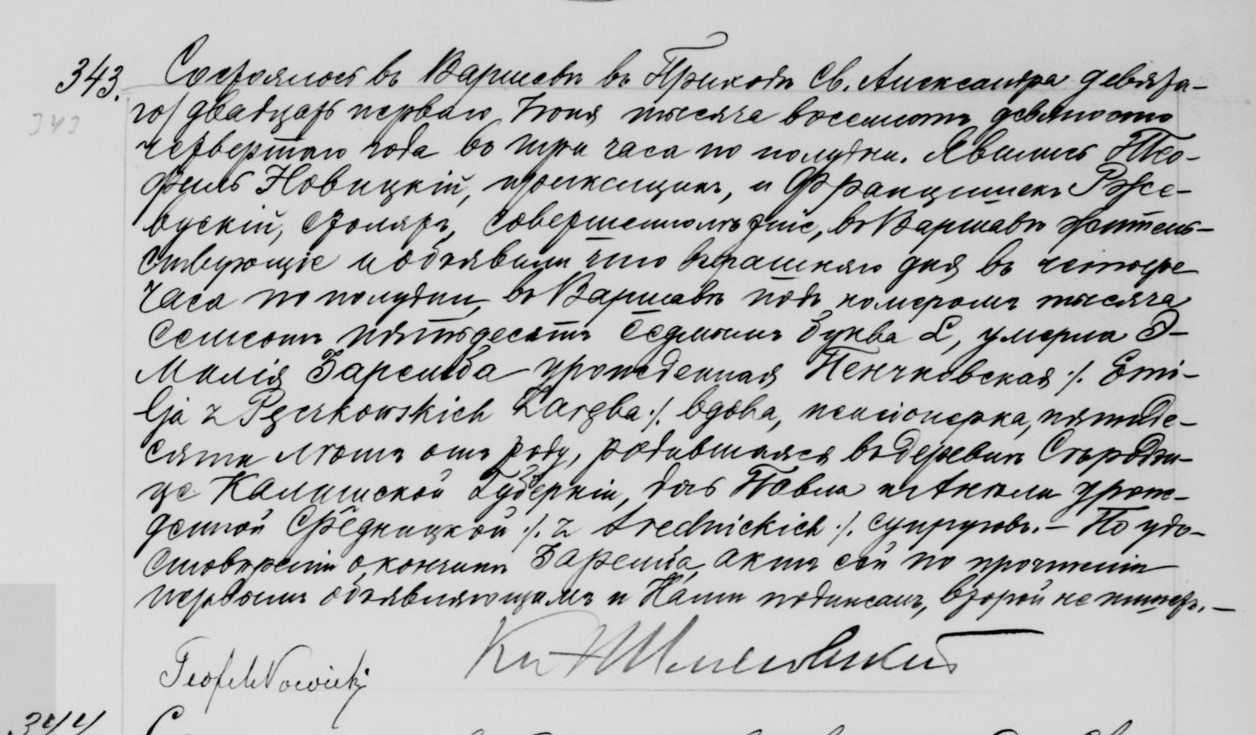 343. Состоялось въ Варшавѣ въ Приходѣ Св. Александра девята-
343 го/двадцать перваго Іюня тысяча восемсотъ девяносто
четвертаго года въ три часа по полудни. Явились Тео-
филь Новицкій, прикащикъ, и Францишекъ Рже-
вускій, столяръ, совершеннолѣтніе, въ Варшавѣ житель-
ствующіе и объявили что вчрашняго дня въ четыре
часа по полудни, въ Варшавѣ подъ номеромъ тысяча
семсотъ пятьдесятъ седмымъ буква L, умерла Э-
милія Заремба урожденная Пенчковская ·/. Emi-
lja z Pęczkowskich Zaręba ·/. вдова, пенсіонерка, пятиде-
сяти лѣтъ отъ роду, родившаяся въ деревнѣ
це Калишской Губерніи, дочь Павла и Анели урож-
денной Средницкой ·/. z Srednickich ·/. супруговъ. – По удо-
стовѣреніи о кончинѣ Заремба, актъ сей по прочтеніи
первымъ объявляющимъ и Нами подписанъ, второй не пишетъ. –
Teofil Nowicki Кс.
344